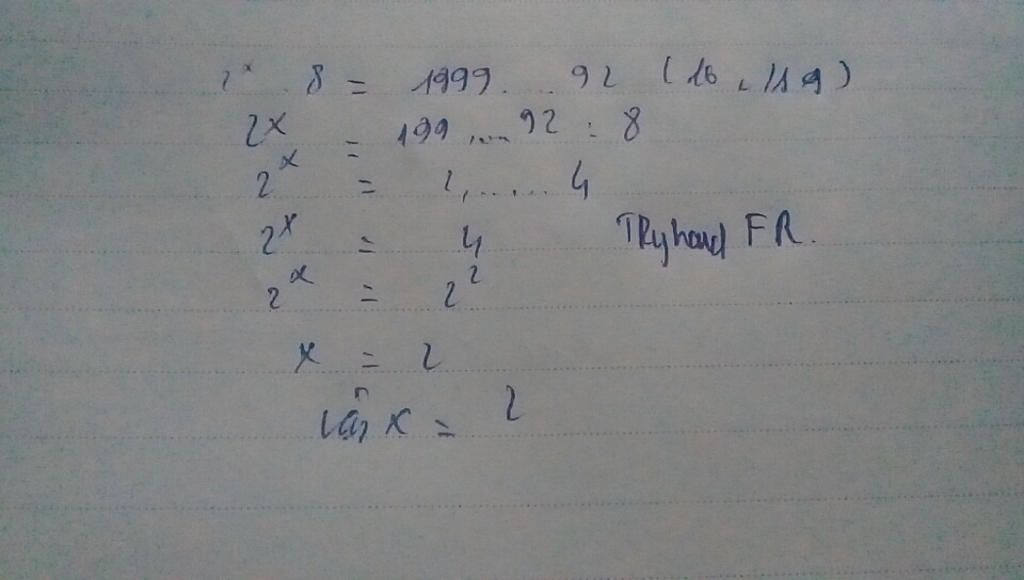 2ˣ . 8 = 1999...92 (16 c/s 9)
2ˣ = 199....92 : 8
2ˣ = 2,......4
2ˣ = 4 TRyhard FR.
2ˣ = 2²
x = 2
Vậy x = 2